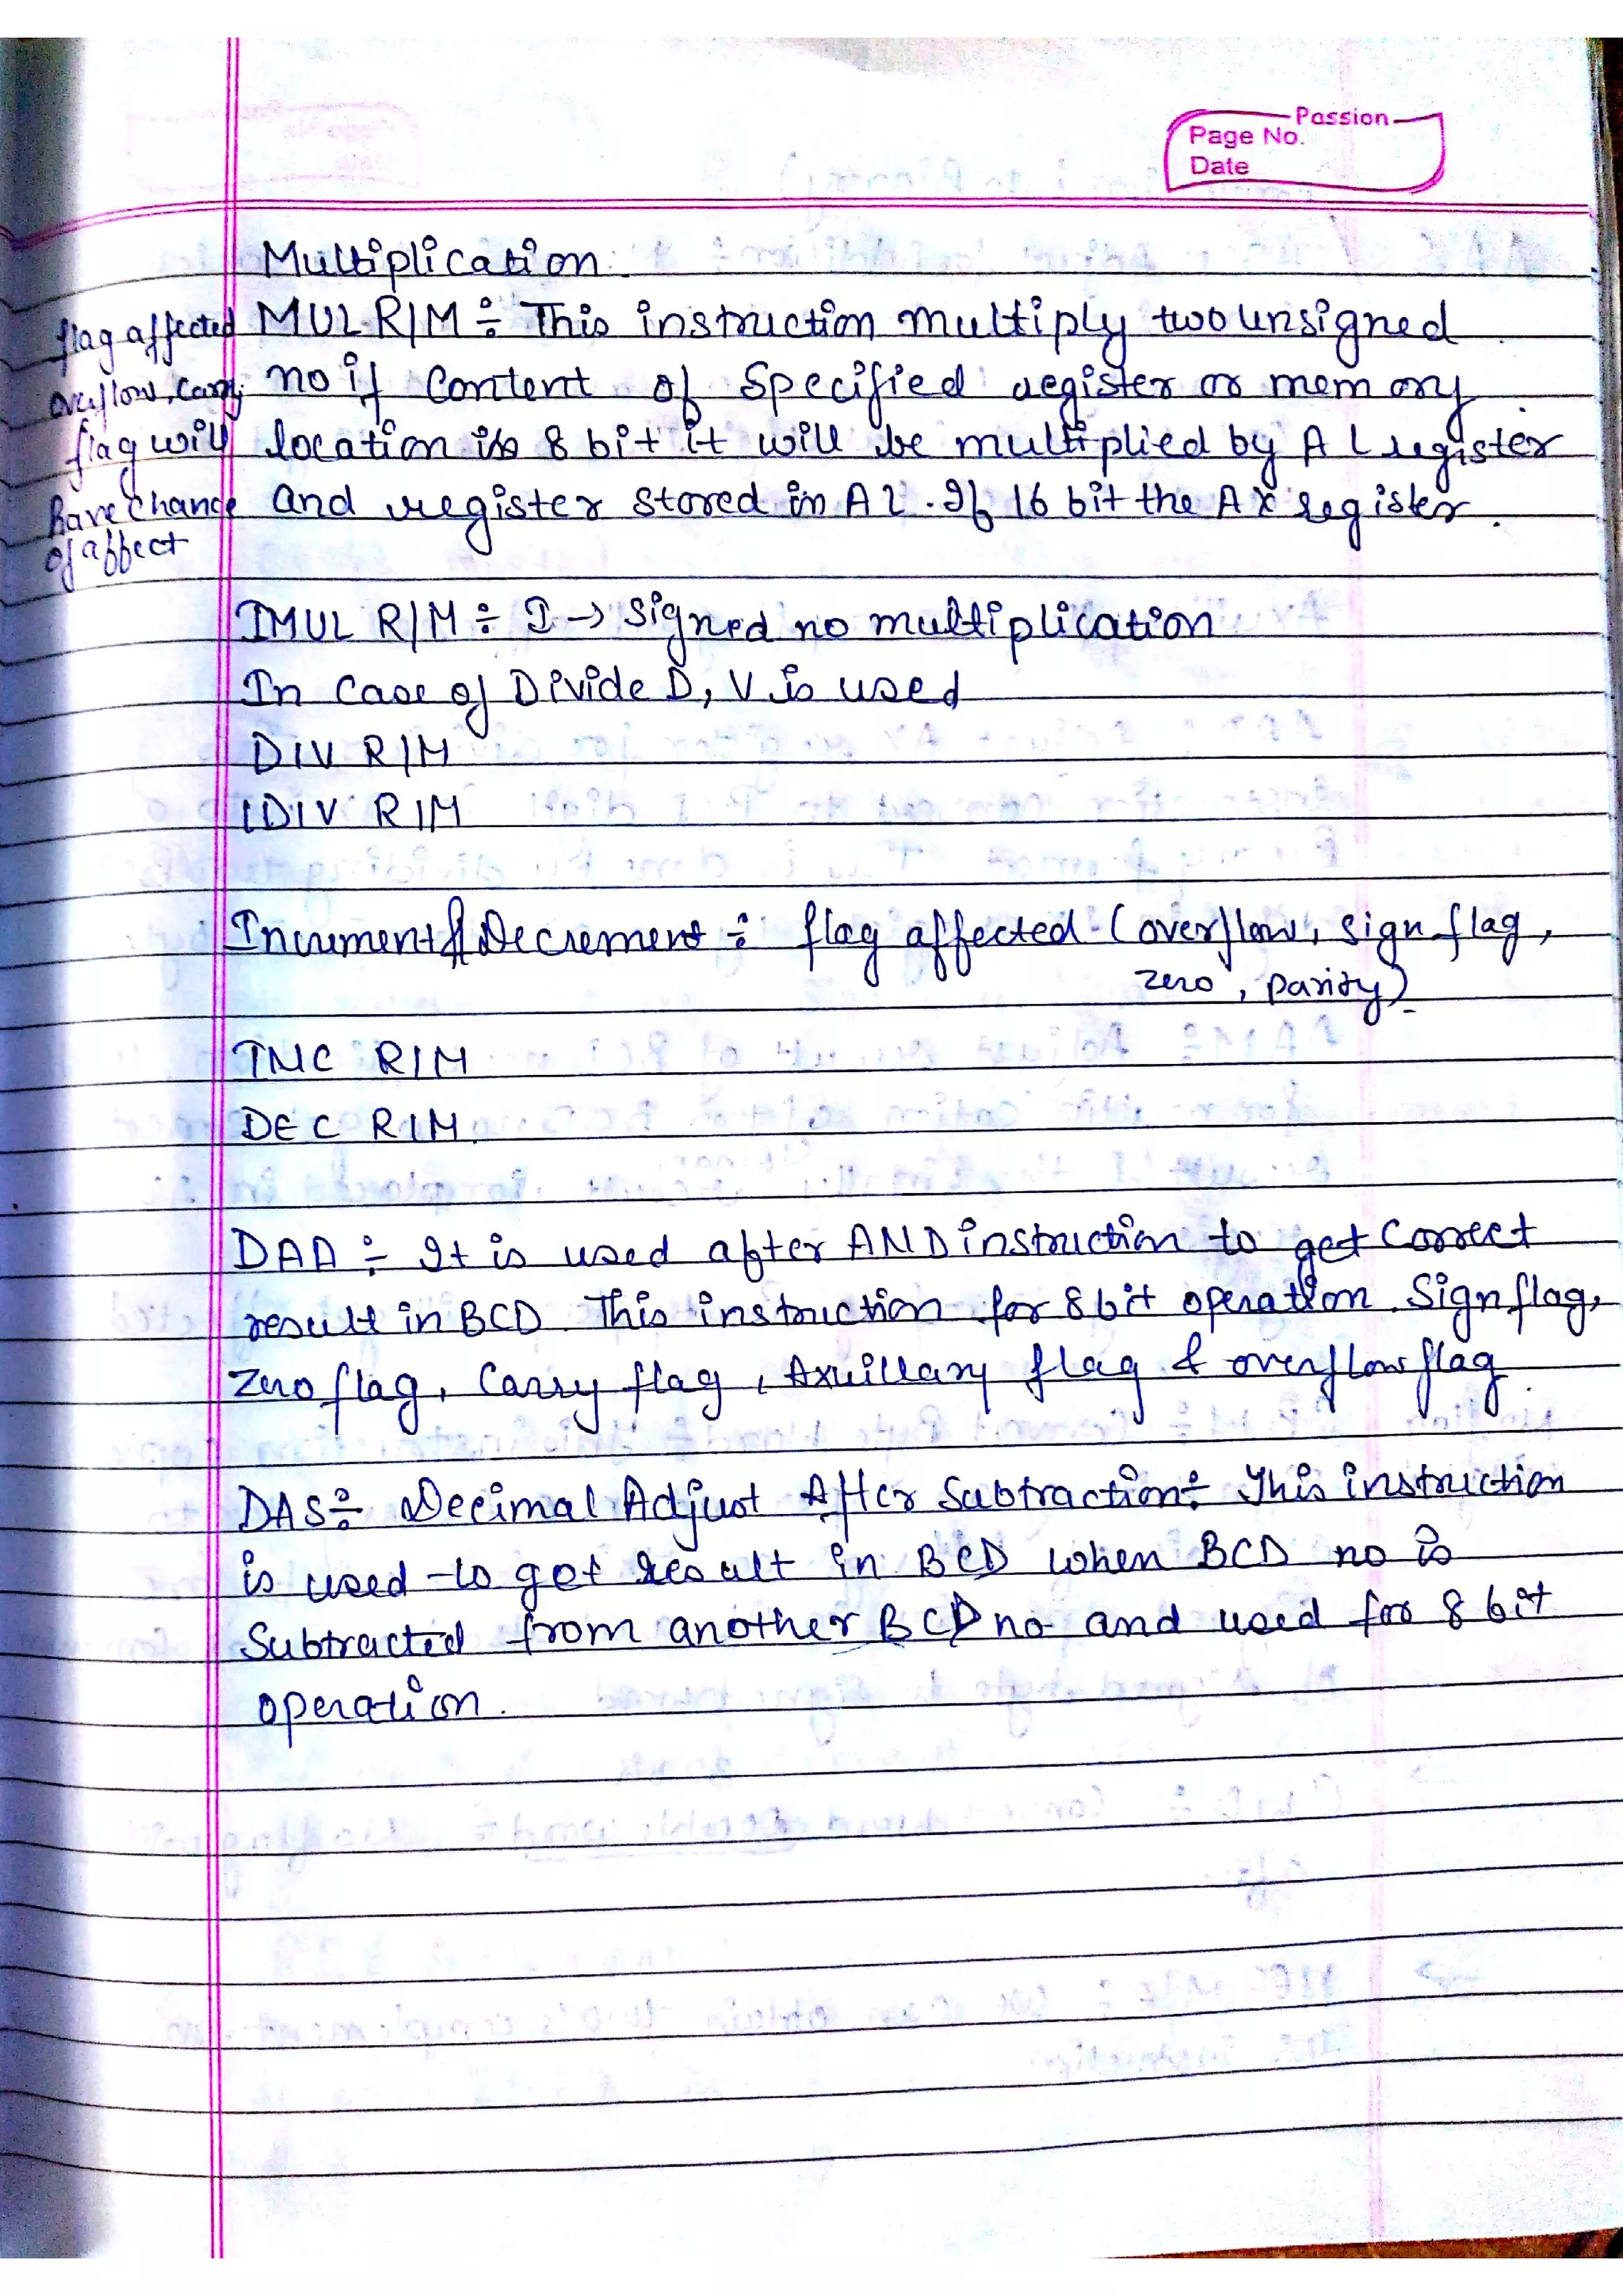 Passion
Page No.
Date
Multiplication
flag affected
overflow, carry
flag will
have change
of affect
MUL R/M ÷ This instruction multiply two unsigned
no if Content of Specified register or memory
location is 8 bit it will be multiplied by AL register
and register stored in AL. If 16 bit the AX register.
IMUL R/M ÷ I → Signed no multiplication
In Case of Divide D, V is used
DIV R/M
IDIV R/M
Increment & Decrement ÷ flag affected (overflow, sign flag,
zero, parity)
INC R/M
DEC R/M.
DAA ÷ It is used after AND instruction to get Correct
result in BCD. This instruction for 8 bit operation. Sign flag,
Zero flag, Carry flag, Axuillary flag & overflow flag.
DAS ÷ Decimal Adjust After Subtraction ÷ This instruction
is used to get result in BCD when BCD no is
Subtracted from another BCD no and used for 8 bit
operation.